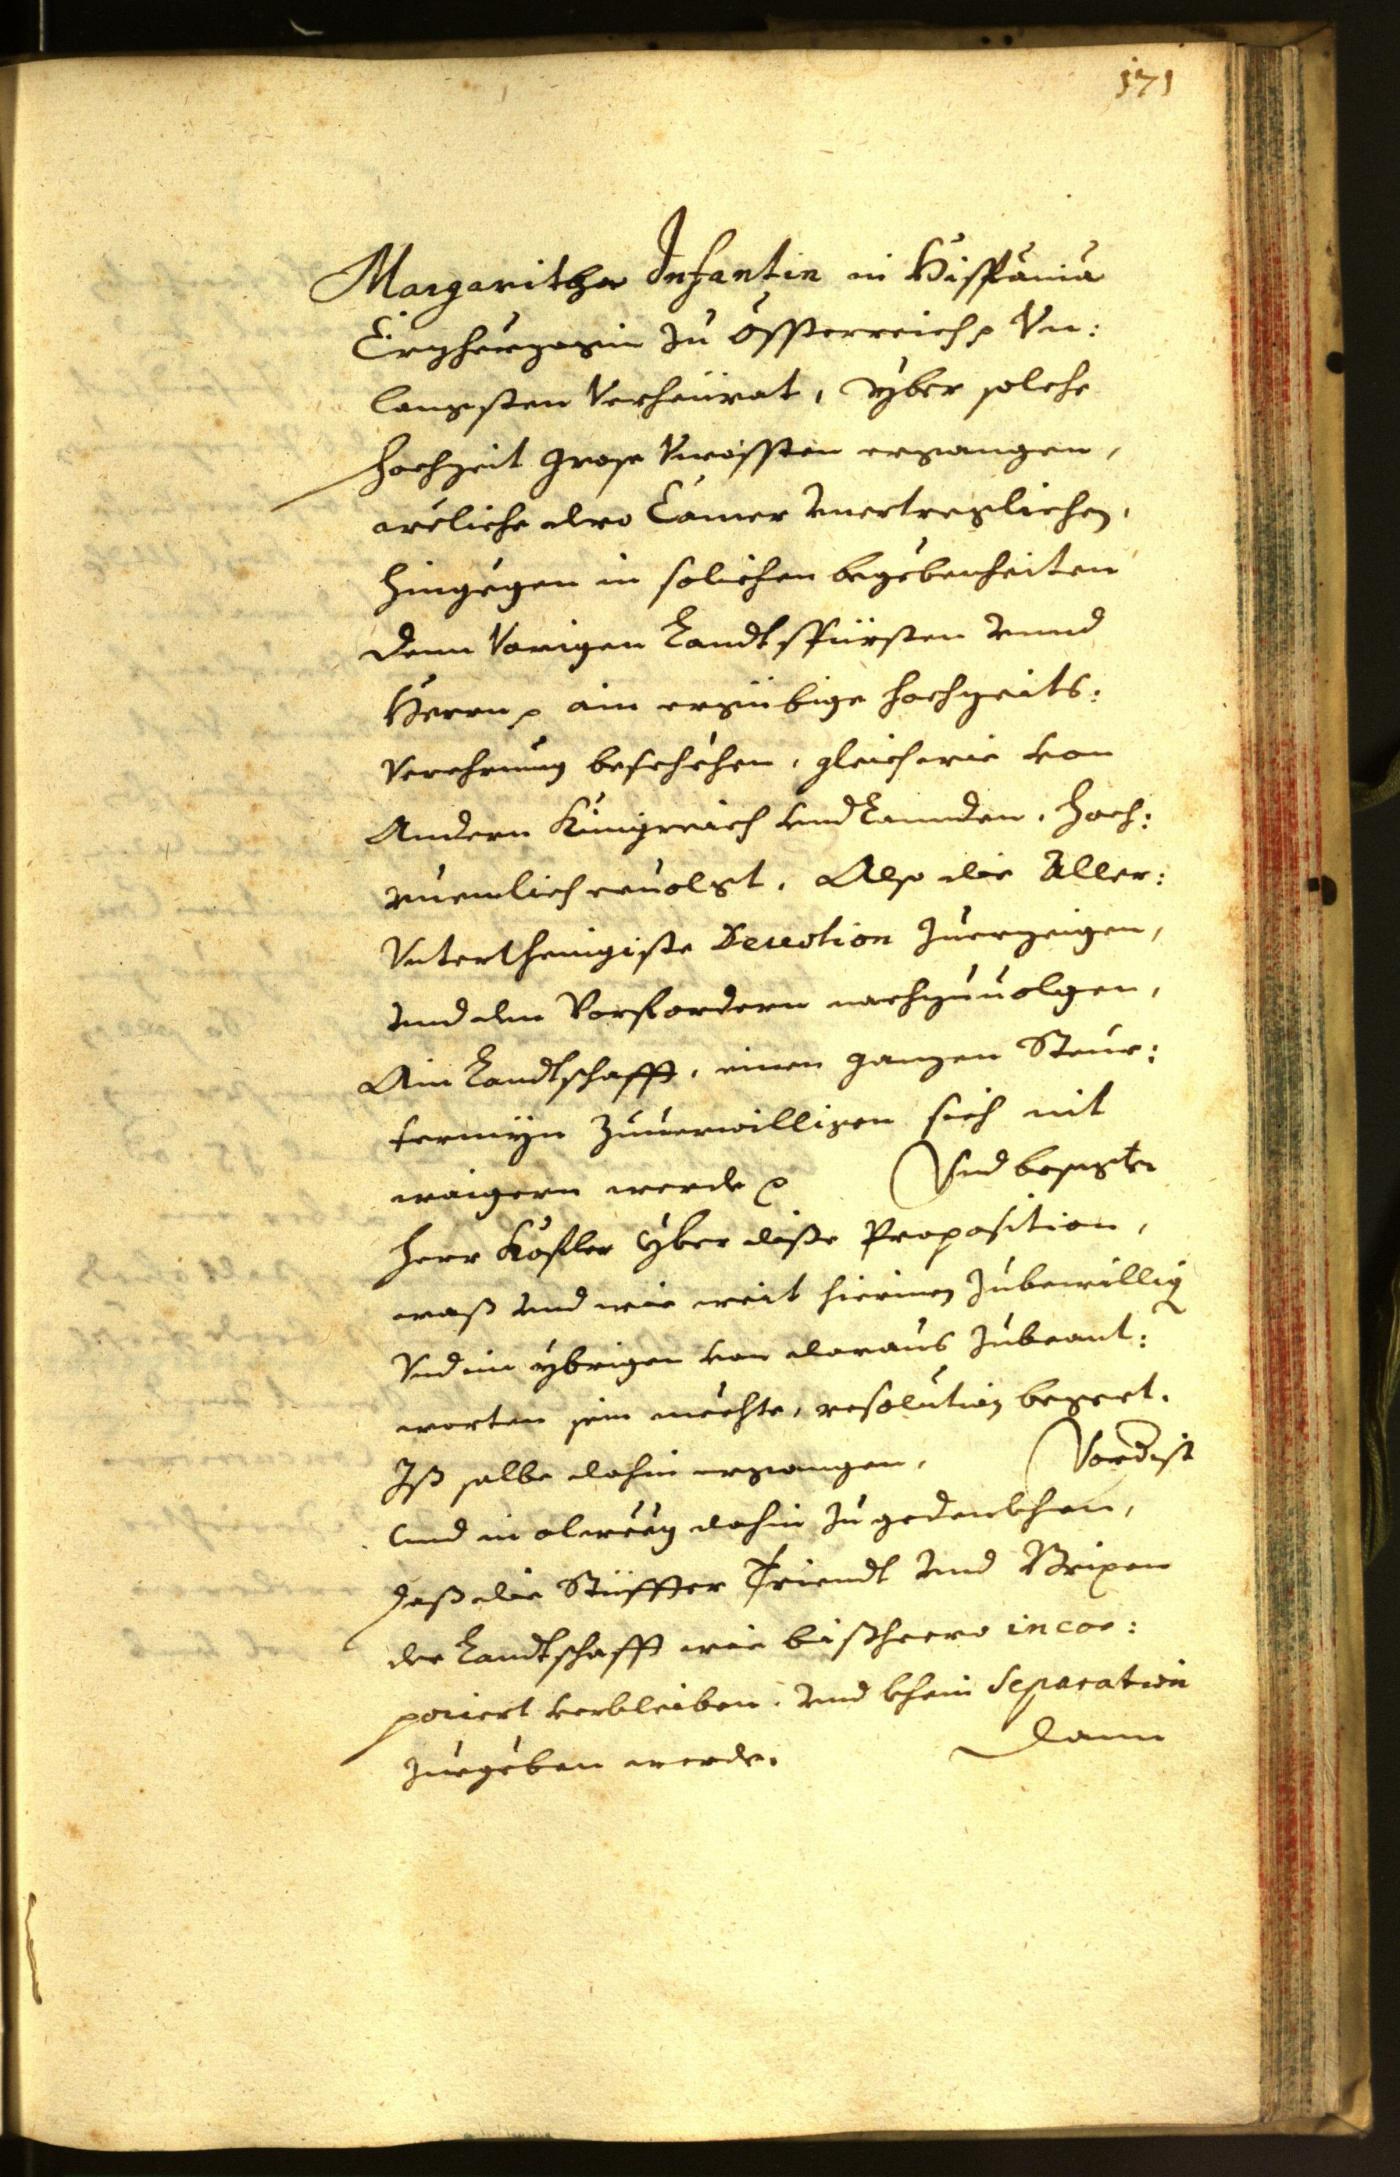 171
Margaritha Infantin in Hispania
Erzherzogin zu Össterreich p Vn:
langsten Verheürat, yber solche
hochzeit grose Vncossten ergangen,
welche dero Camer vnertreglichen,
hingegen in solichen begebenheiten
denn Vorigen Landtsfürsten vnnd
Herrn p ain ergiübige hochzeits:
Verehrung beschehen, gleich wie von
Andern Künigreich vnd Lannden, hoch:
ruemlich eruolgt. Also die Aller:
Vnterthenigiste Deuotion zuerzeigen,
vnd den Vorfordern nachzuuolgen,
Ain Landtschafft, einen ganzen Steur:
termÿn zuuerwilligen sich nit
waigern werde p Vnd begerten
Herr Kofler yber diße Proposition,
waß vnd wie weit hierinen zubewillig
Vnd im ybrigen von daraus zubeant:
worten sein mechte, resolution begert.
Ist selbe dahin ergangen, Vordist
vnd in dahin zu gedenkhen,
daß die Stüffter Triendt vnd Brixen
der Landtschafft wie bißheero incor:
poriert verbleiben, vnd khein Separation
zuegeben werde. Dann